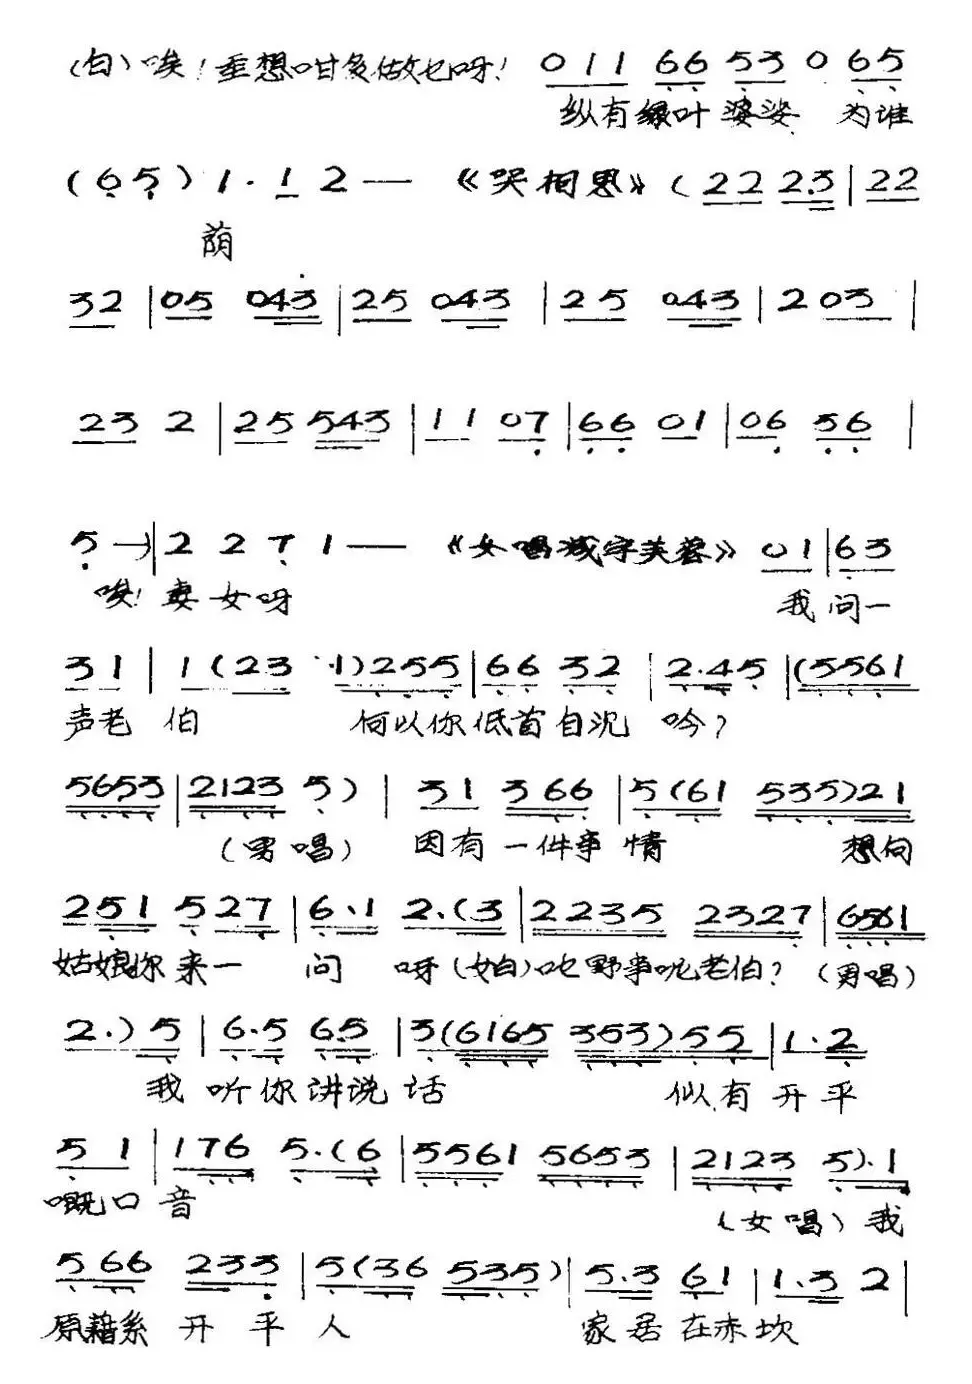 （白）唉！重想咁多做乜呀！ 0 1 1 6 6 5 3 0 6 5
纵有绿叶婆娑 为谁
(6 5) 1 · 1 2 — 《哭相思》 (2 2 2·3 | 2 2
荫
3 2 | 0 5 0 4 3 | 2 5 0 4 3 | 2 5 0 4 3 | 2 0 3 |
2 3 2 | 2 5 5 4 3 | 1 1 0 7 | 6 6 0 1 | 0 6 5 6 |
5 —) | 2 2 7 1 — 《女唱减字芙蓉》 0 1 | 6 3
唉！妻女呀 我问一
3 1 | 1 (2 3 · 1) 2 5 5 | 6 6 3 2 | 2·4 5 | (5 5 6 1
声老伯 何以你低首自沉 吟？
5 6 5 3 | 2 1 2 3 5) | 3 1 3 6 6 | 5 (6 1 5 3 5) 2 1
（男唱） 因有一件事情 想向
2 5 1 5 2 7 | 6·1 2·(3 | 2 2 3 5 2 3 2 7 | 6 5 6 1
姑娘你来一 问 呀（女白）乜野事呢老伯？（男唱）
2·) 5 | 6·5 6 5 | 3 (6 1 6 5 3 5 3) 5 5 | 1·2
我 听你讲说话 似有开平
5 1 | 1 7 6 5·(6 | 5 5 6 1 5 6 5 3 | 2 1 2 3 5)·1
嘅口音 （女唱）我
5 6 6 2 3 3 | 5 (3 6 5 3 5) | 5·3 6 1 | 1·3 2 |
原籍系开平人 家居在赤坎